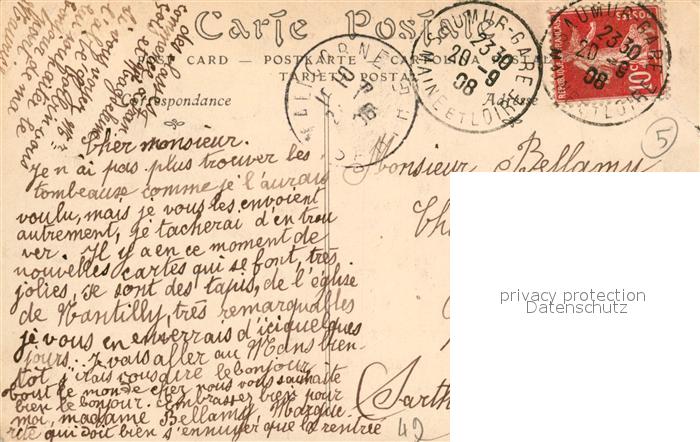 Carte Postale
POST CARD - POSTKARTE - CARTOLINA
TARJETA POSTAL
Correspondance
Adresse
SAUMUR-GARE
23 30
20 -9
08
MAINE ET LOIRE
SAUMUR-GARE
23 30
20 -9
08
ET LOIRE
REPUBLIQUE FRANÇAISE
POSTES
10
5
Cher monsieur.
Je n'ai pas plus trouver les
tombeaux comme je l'aurais
voulu, mais je vous les envoient
autrement, je tacherai d'en trou
ver. Il y a en ce moment de
nouvelles cartes qui se font, très
jolies, se sont des tapis, de l'église
de Nantilly, très remarquables
je vous en enverrais d'ici quelques
jours. Je vais aller au Mans bien-
tôt j'irais vous dire le bonjour
tout le monde chez nous vous souhaite
bien le bonjour. Embrassez bien pour
moi, madame Bellamy, Margue-
rite qui doit bien s'ennuyer que la rentrée
Monsieur Bellamy
Ch
Sarth
42
privacy protection
Datenschutz